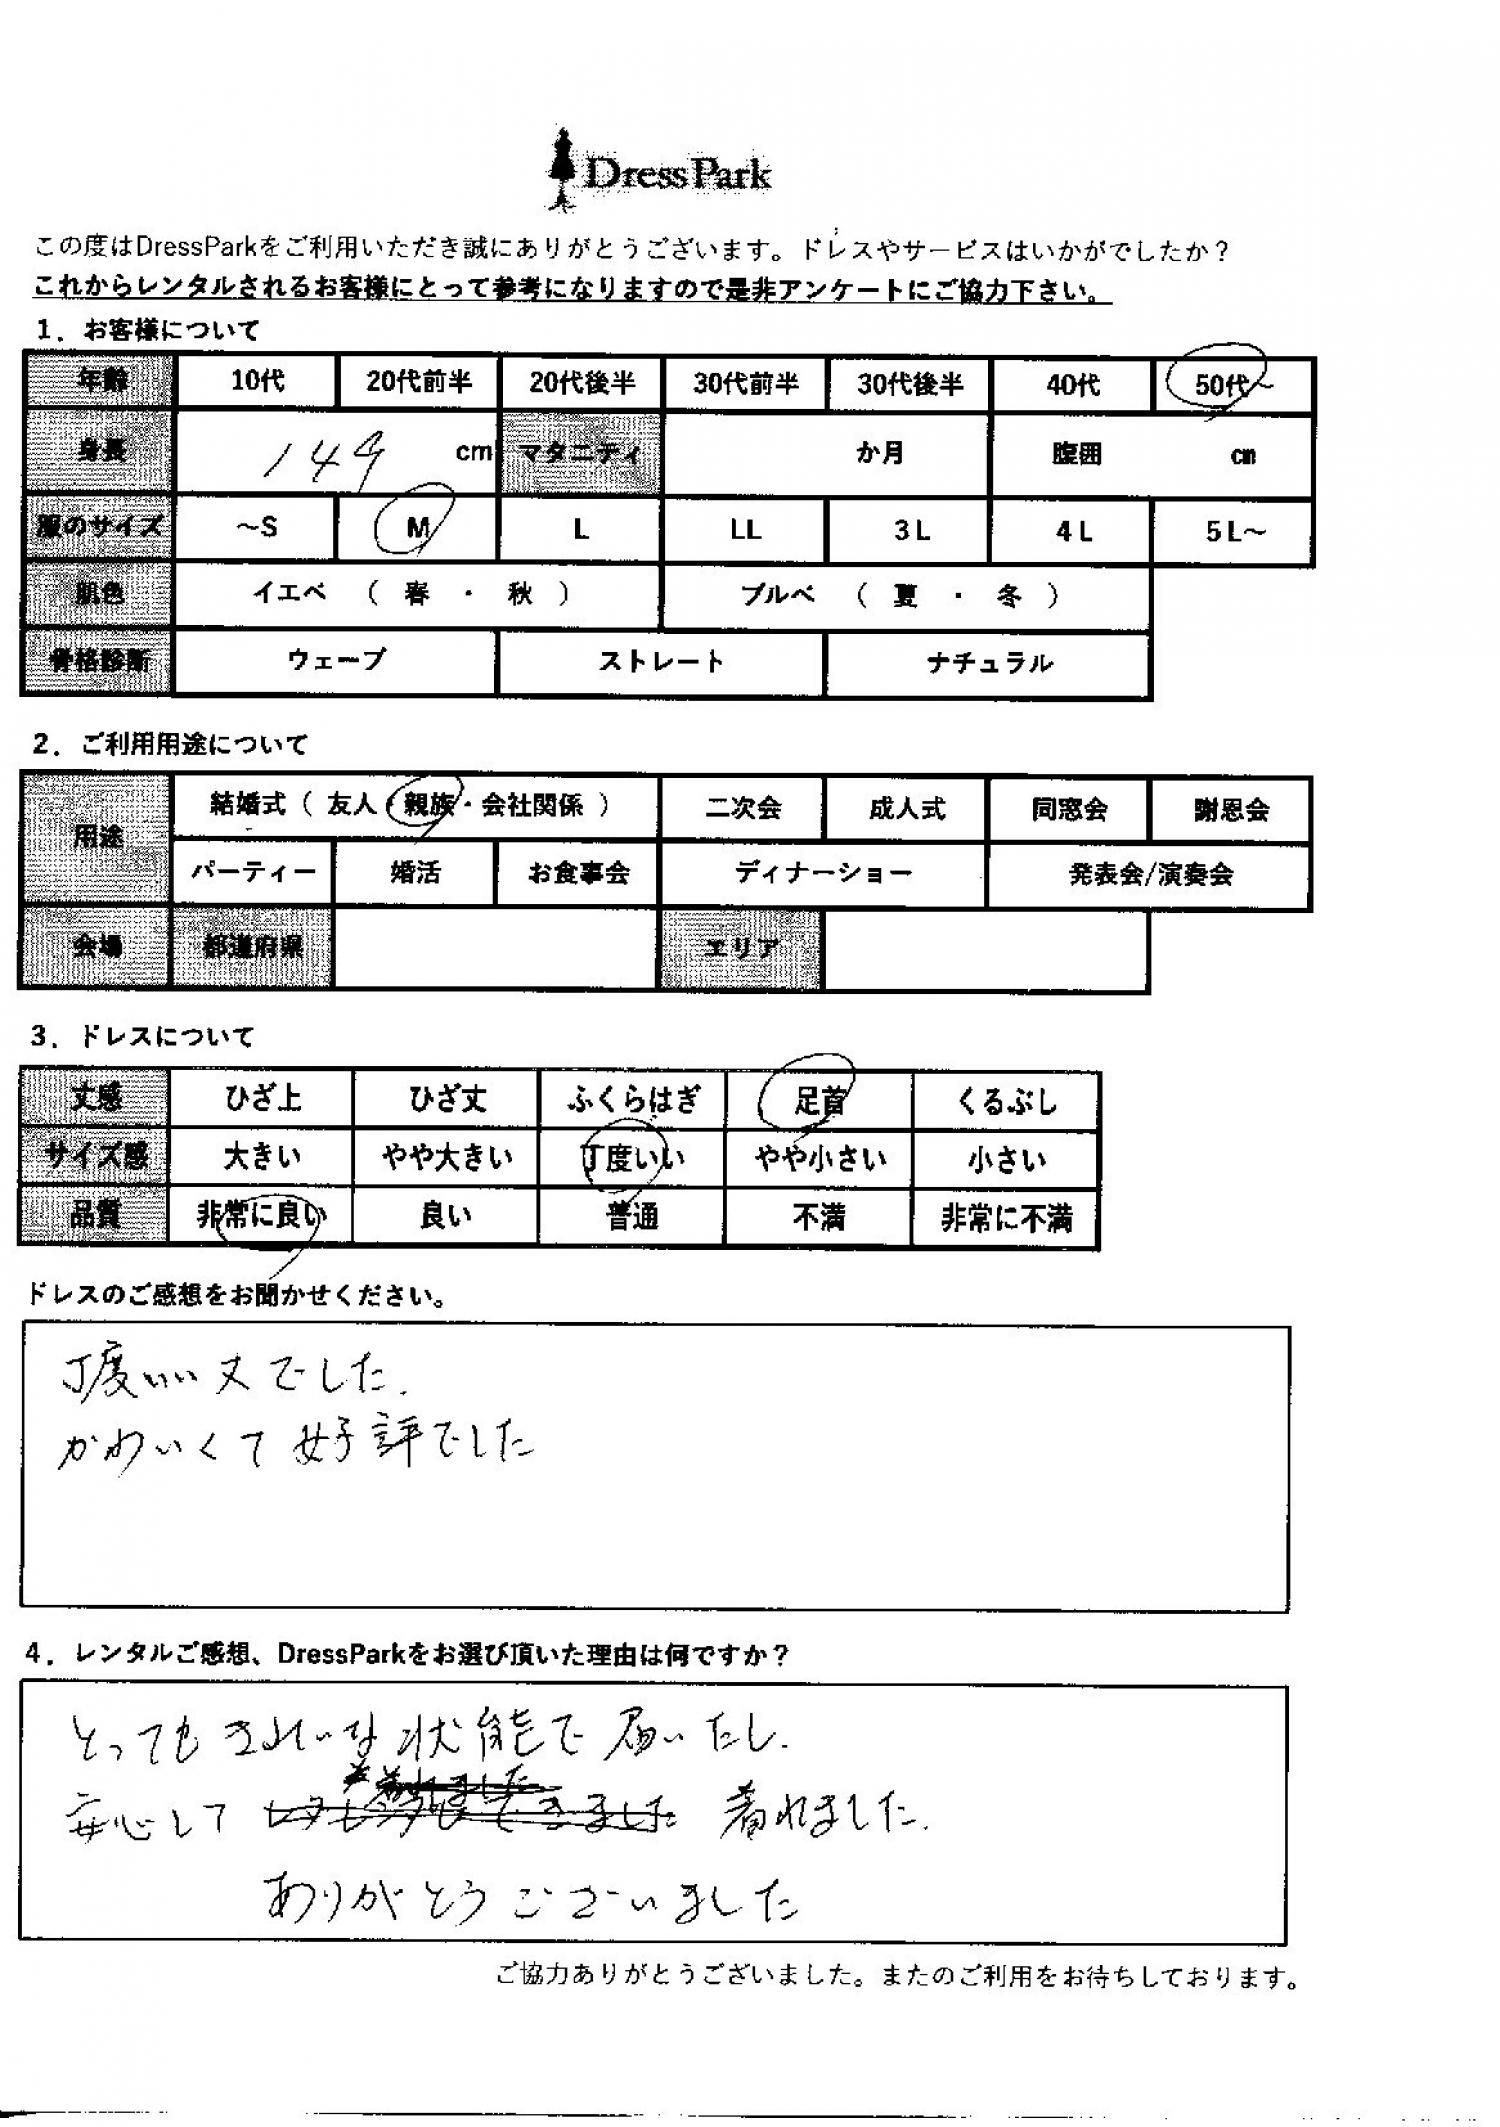 DressPark
この度はDressParkをご利用いただき誠にありがとうございます。ドレスやサービスはいかがでしたか？
これからレンタルされるお客様にとって参考になりますので是非アンケートにご協力下さい。
1．お客様について
年齢 10代 20代前半 20代後半 30代前半 30代後半 40代 50代～
身長 149 cm マタニティ か月 腹囲 cm
服のサイズ ～S M L LL 3L 4L 5L～
肌色 イエベ （ 春 ・ 秋 ） ブルベ （ 夏 ・ 冬 ）
骨格診断 ウェーブ ストレート ナチュラル
2．ご利用用途について
用途 結婚式（ 友人・親族・会社関係 ） 二次会 成人式 同窓会 謝恩会
パーティー 婚活 お食事会 ディナーショー 発表会/演奏会
会場 都道府県 エリア
3．ドレスについて
丈感 ひざ上 ひざ丈 ふくらはぎ 足首 くるぶし
サイズ感 大きい やや大きい 丁度いい やや小さい 小さい
品質 非常に良い 良い 普通 不満 非常に不満
ドレスのご感想をお聞かせください。
丁度いい丈でした.
かわいくて好評でした
4．レンタルご感想、DressParkをお選び頂いた理由は何ですか？
とってもきれいな状態で届いたし.
安心して 着れました.
ありがとうございました
ご協力ありがとうございました。またのご利用をお待ちしております。